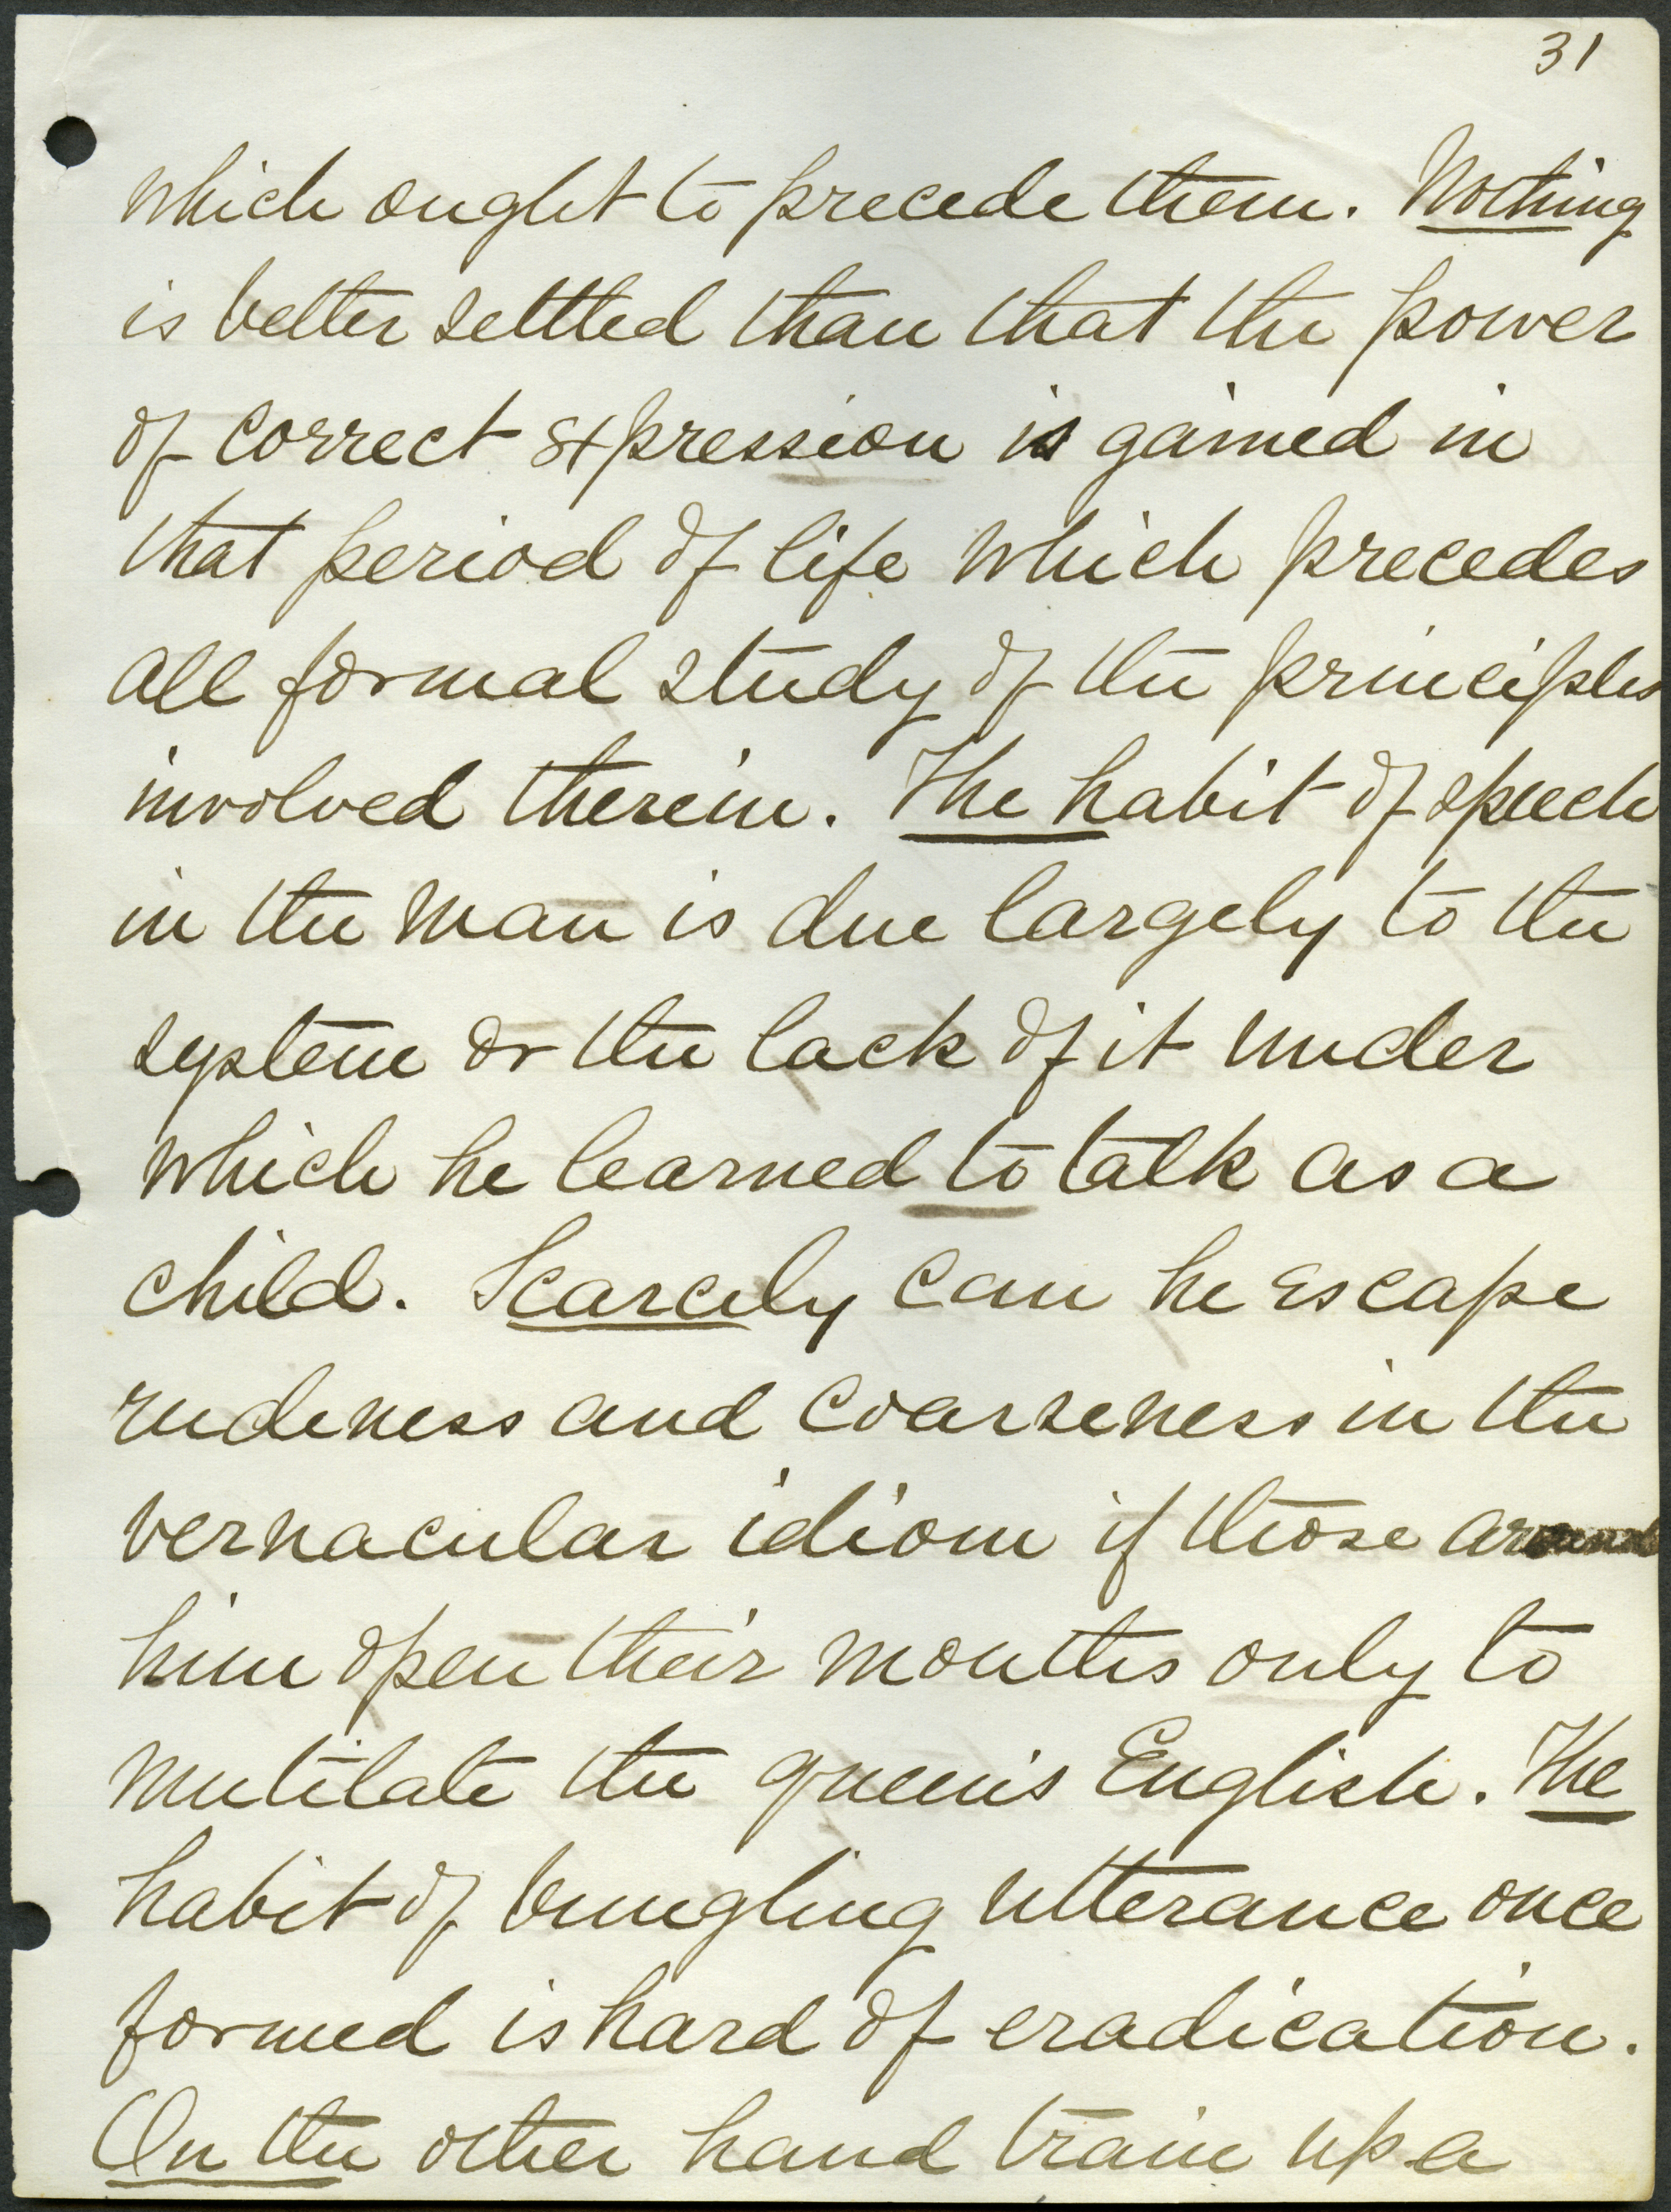 31
which ought to precede them. Nothing
is better settled than that the power
of correct expression is gained in
that period of life which precedes
all formal study of the principles
involved therein. The habit of speech
in the man is due largely to the
system or the lack of it under
which he learned to talk as a
child. Scarcely can he escape
rudeness and coarseness in the
vernacular idiom if those around
him open their mouths only to
mutilate the queen's English. The
habit of bungling utterance once
formed is hard of eradication.
On the other hand train up a